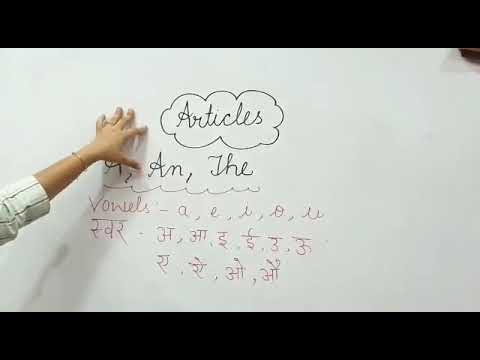 Articles
A, An, The
Vowels:- a, e, i, o, u
स्वर - अ, आ, इ, ई, उ, ऊ.
ए, ऐ, ओ, औ